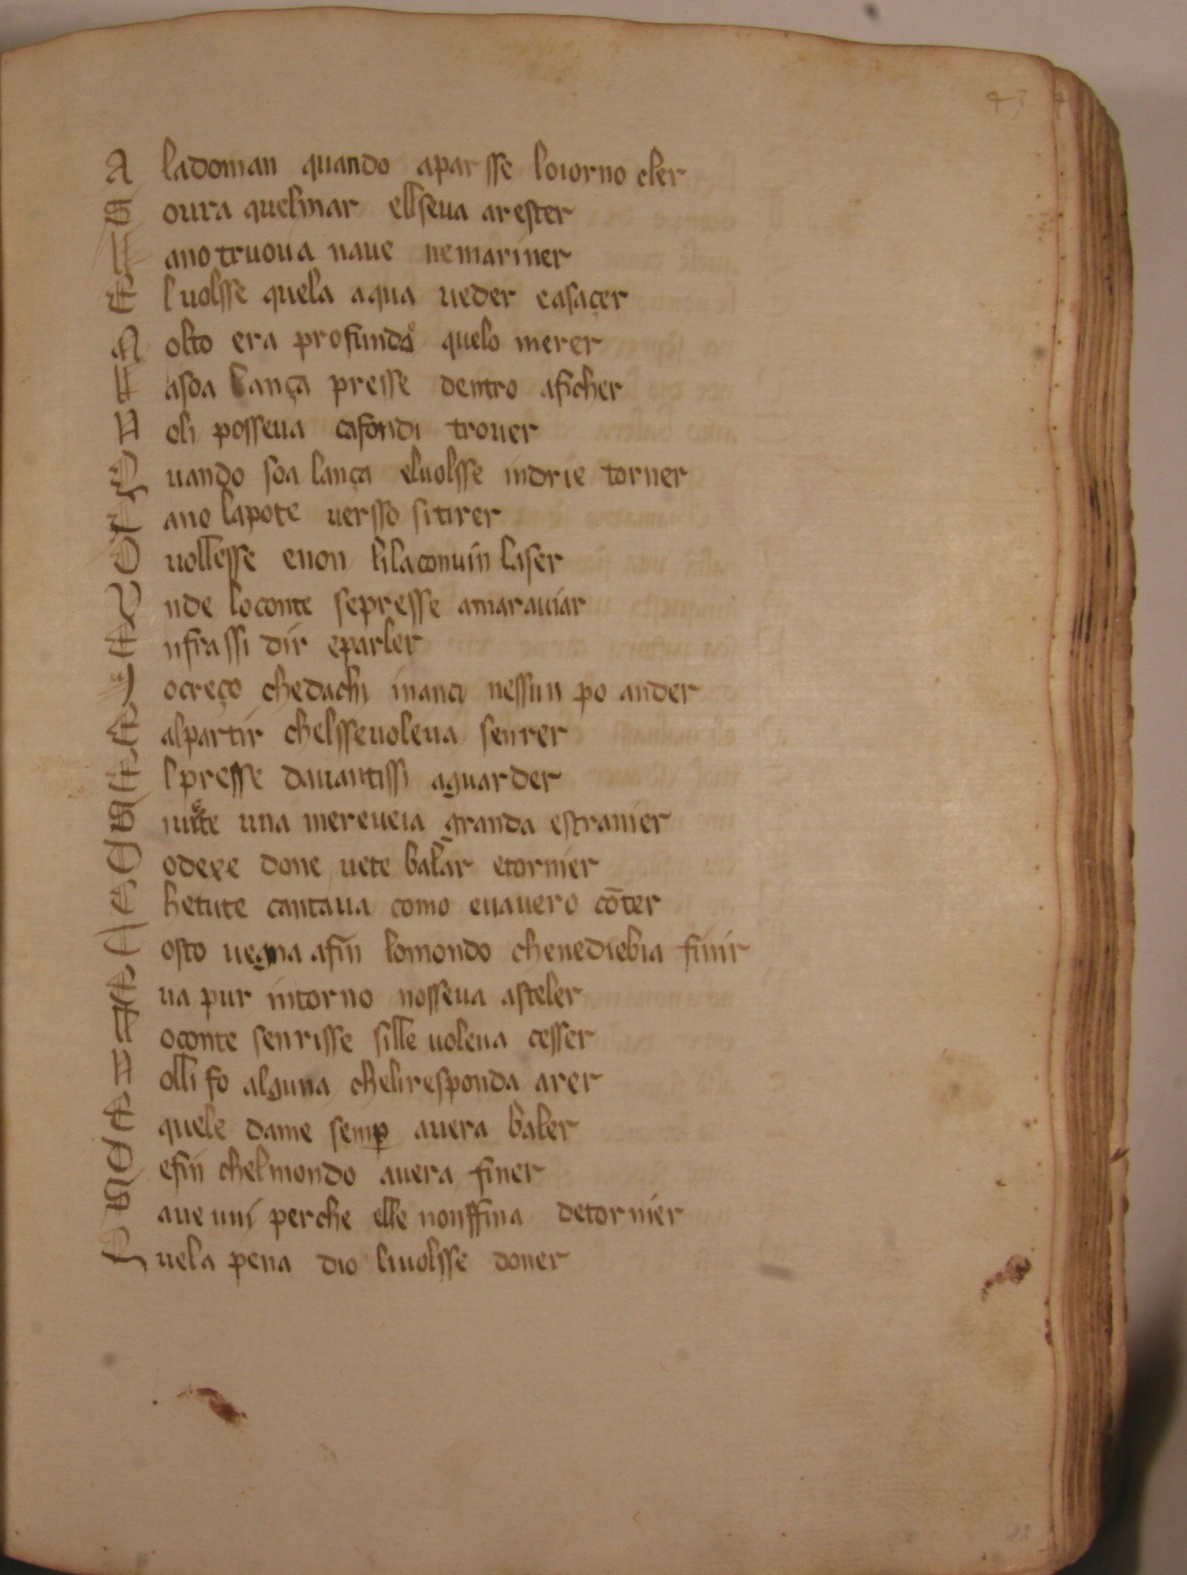 43
A ladoman quando aparsse loiorno cler
S oura quelmar ellseua arester
N ano truoua naue nemariner
E luolsse quela aqua ueder easaçer
M olto era profunda quelo merer
L asoa lança presse dentro aficher
N oli posseua cafondi trouer
Q uando soa lança eluolsse indrie torner
E ano lapote uersso sitirer
D uollesse enon lilaconuin laser
V nde loconte sepresse amarauiar
E nfrassi dir eparler
I ocreço chedachi inanci nessun po ander
E alpartir chelsseuoleua senrer
E lpresse dauantissi aguarder
S uite una mereueia granda estranier
D odexe done uete balar etornier
C hetute cantaua como euauero cōter
T osto uegna afin lomondo chenediebia finir
E ua pur intorno nosseua asteler
L oconte senrisse sille uoleua cesser
N olli fo alguna cheliresponda arer
E quele dame semp auera baler
D efin chelmondo auera finer
S aue uui perche elle nonffina detornier
Q uela pena dio liuolsse doner